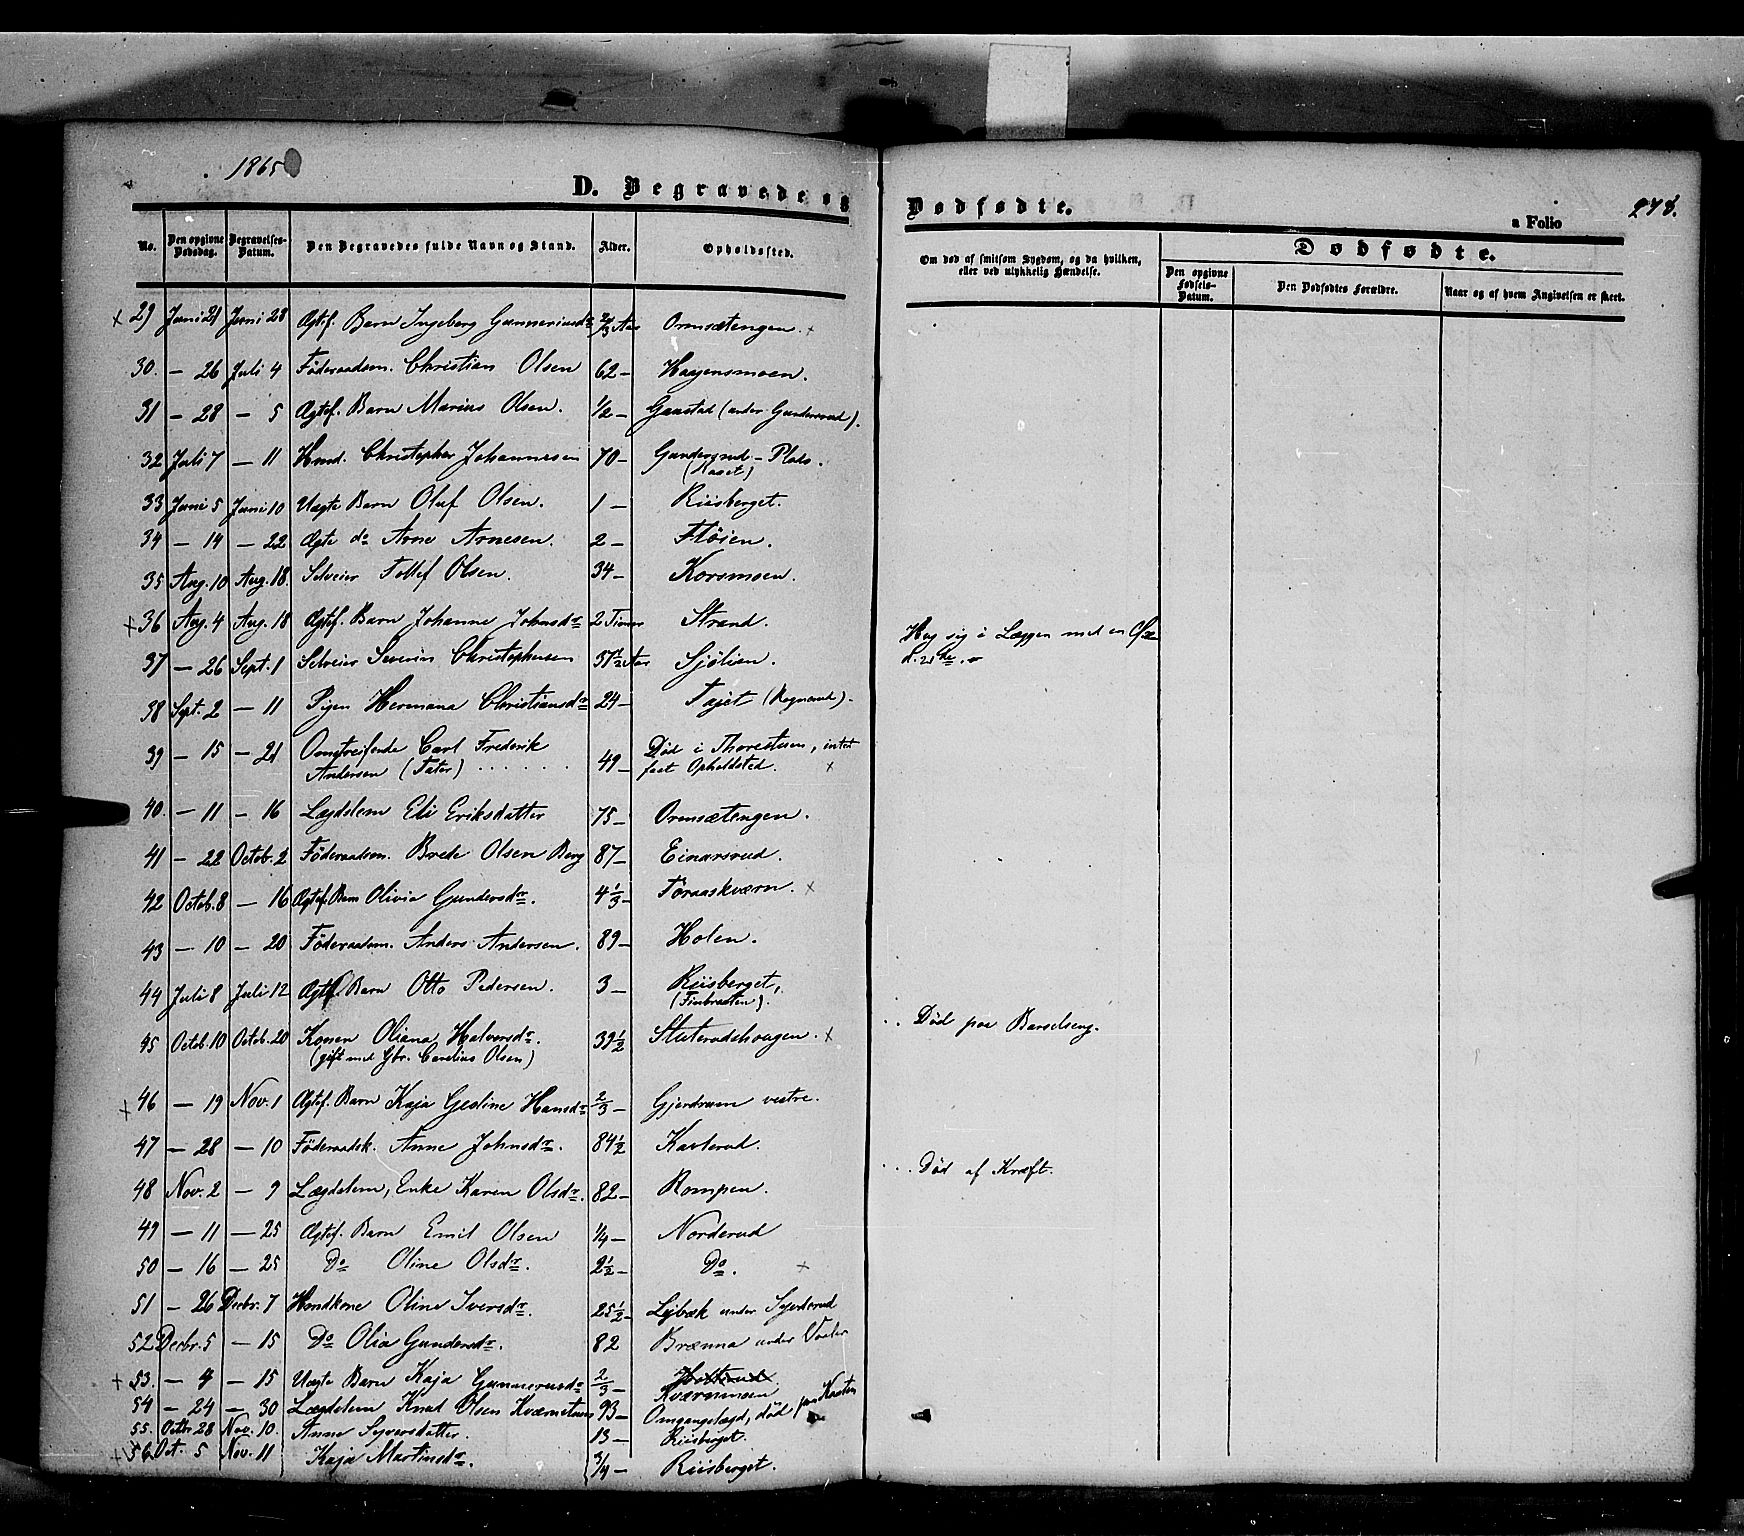 1865
D. Begravede og
Dødfødte.
a Folio
278.
No. Den opgivne Dødsdag. Begravelses-Datum. Den Begravedes fulde Navn og Stand. Alder. Opholdssted.
Om død af smitsom Sygdom, og da hvilken, eller ved ulykkelig Hændelse.
Dødfødte.
Den opgivne Fødsels-Datum. Den Dødfødtes Forældre. Naar og af hvem Angivelsen er skeet.
x 29 Juni 21 Juni 28 Ægtef. Barn Ingeborg Gunneriusdr 2/3 Aar Ormsætengen. x
30. — 26 Juli 4 Föderaadsm. Christian Olsen 62 — Haagensmoen.
31 — 28 — 5 Ægtef. Barn Marius Olsen. 1/2 — Gaustad (under Gundersrud).
32 Juli 7 — 11 Hmd. Christopher Johannesen 70 — Gundersrud-Plads.
33 Juni 5 Juni 10 Uægte Barn Oluf Olsen. 1 — Riisberget.
34 — 14 — 22 Ægte do Arne Arnesen. 2 — Fløien.
35 Aug. 10 Aug. 18. Selveier Tollef Olsen. 34 — Korsmoen.
x 36 Aug. 4 Aug. 18 Ægtef. Barn Johanne Johnsdr 2 Timer Strand.
37 — 26 Sept. 1 Selveier Severin Christophersen 37 1/2 Aar Sjölien. Hug sig i Læggen med en Øxe
38 Sept. 2 — 11 Pigen Hermana Christiansdr 24 —
39 — 15 — 21 Omstreifende Carl Frederik
Andersen (Tater) . . . . . . 49 — Död i Thorestuen, intet
fast Opholdsted. x
40. — 11 — 16 Lægdslem Eli Eriksdatter 75 — Ormsætengen.
41 — 22 Octob. 2 Föderaadsm. Brede Olsen Berg 87 — Einarsrud.
42 Octob. 8 — 16 Ægtef. Barn Olivia Gundersdr. 4 1/3 — Foraaskværn. x
43 — 10 — 20 Föderaadsm. Anders Andersen. 89 — Holen.
44 Juli 8 Juli 12 Ægtef. Barn Otto Pedersen. 3 — Riisberget,
(Finbraaten).
45 Octob. 10 Octob. 20 Konen Oliana Halvorsdr. 39 1/2 Sluterudshougen. x . . Död paa Barselseng.
(gift med Gbr. Carelius Olsen)
x 46 — 19 Nov. 1 Ægtef. Barn Kaja Geoline Hansdr 2/3 — Gjerdrum vestre.
47 — 28 — 10 Föderaadsk. Anne Johnsdr. 84 1/2 Karterud.
48 Nov. 2 — 9 Lægdslem, Enke Karen Olsdr. 82 — Rompen. . . . Död af Kræft.
49 — 11 — 25 Ægtef. Barn Emil Olsen 1/4 — Norderud
50 — 16 — 25 Do Oline Olsdr. 2 1/2 — Do. x
51 — 26 Decbr. 7 Hmdkone Oline Iversdr. 25 1/2 — Lejbæk under
52 Decbr. 5 — 15 Do Olia Gundersdr. 82 Brænna under Vaaler
x 53. — 4 — 15 Uægte Barn Kaja Gunnerusdr 2/3 —
Kværnmoen
54 — 24 — 30 Lægdslem Knud Olsen Kværnstuen 93 — Omgangslægd, död paa Kasten
55. Octbr. 28 Nov. 10. Anne Syversdatter. 13 — Riisberget.
x 56 Oct. 5 Nov. 11 Kaja Martinsdr. 3/4 — Riisberget.